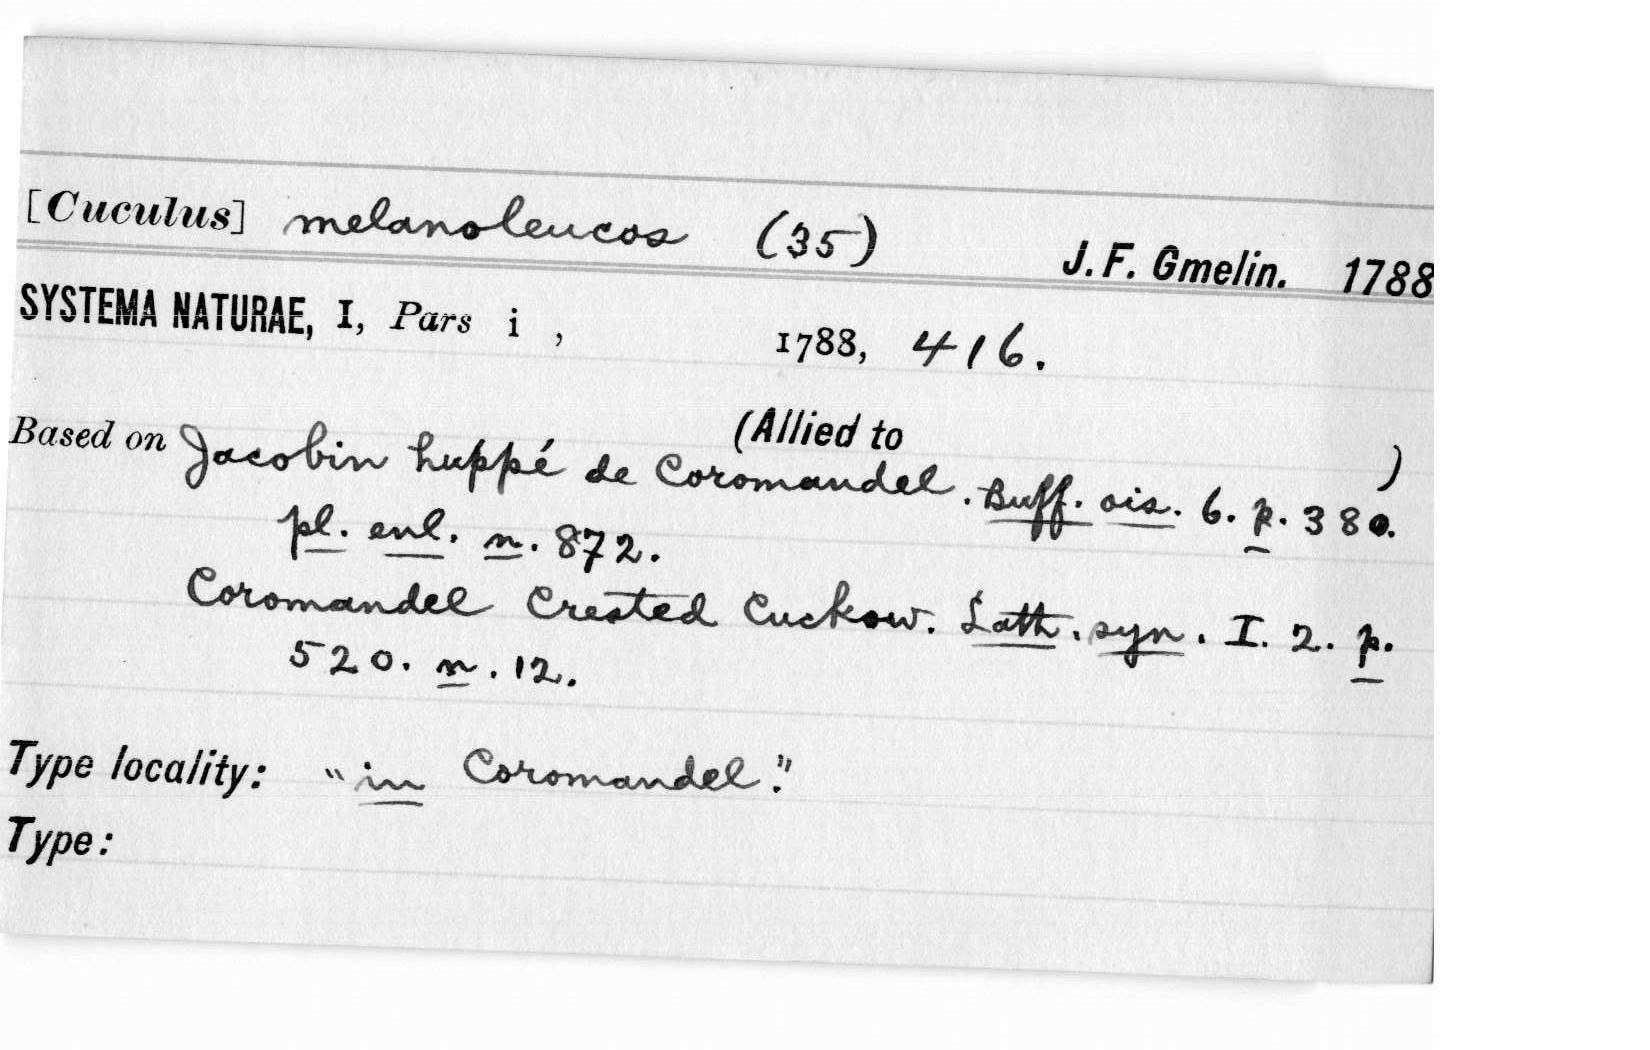 [Cuculus] melanoleucos (35) J. F. Gmelin. 1788
SYSTEMA NATURAE, I, Pars i , 1788, 416.
(Allied to )
Based on Jacobin huppé de Coromandel. Buff. ois. 6. p. 380.
pl. enl. n. 872.
Coromandel Crested Cuckow. Lath. syn. I. 2. p.
520. n. 12.
Type locality: "in Coromandel."
Type: